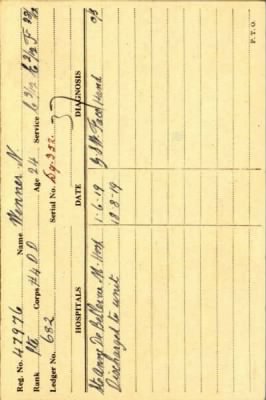 Reg. No. 47976 Name Wenner N.
Rank Pte Corps H.Q. O D Age 24 Service 6 2/12 C 2/12 F
Ledger No. 682 Serial No. Dg. 332
HOSPITALS DATE DIAGNOSIS
Ste Anne De Bellevue M. Hosp 1-6-19 G.S.W. Face Hand
Discharged to unit 18-8-19
P. T. O.